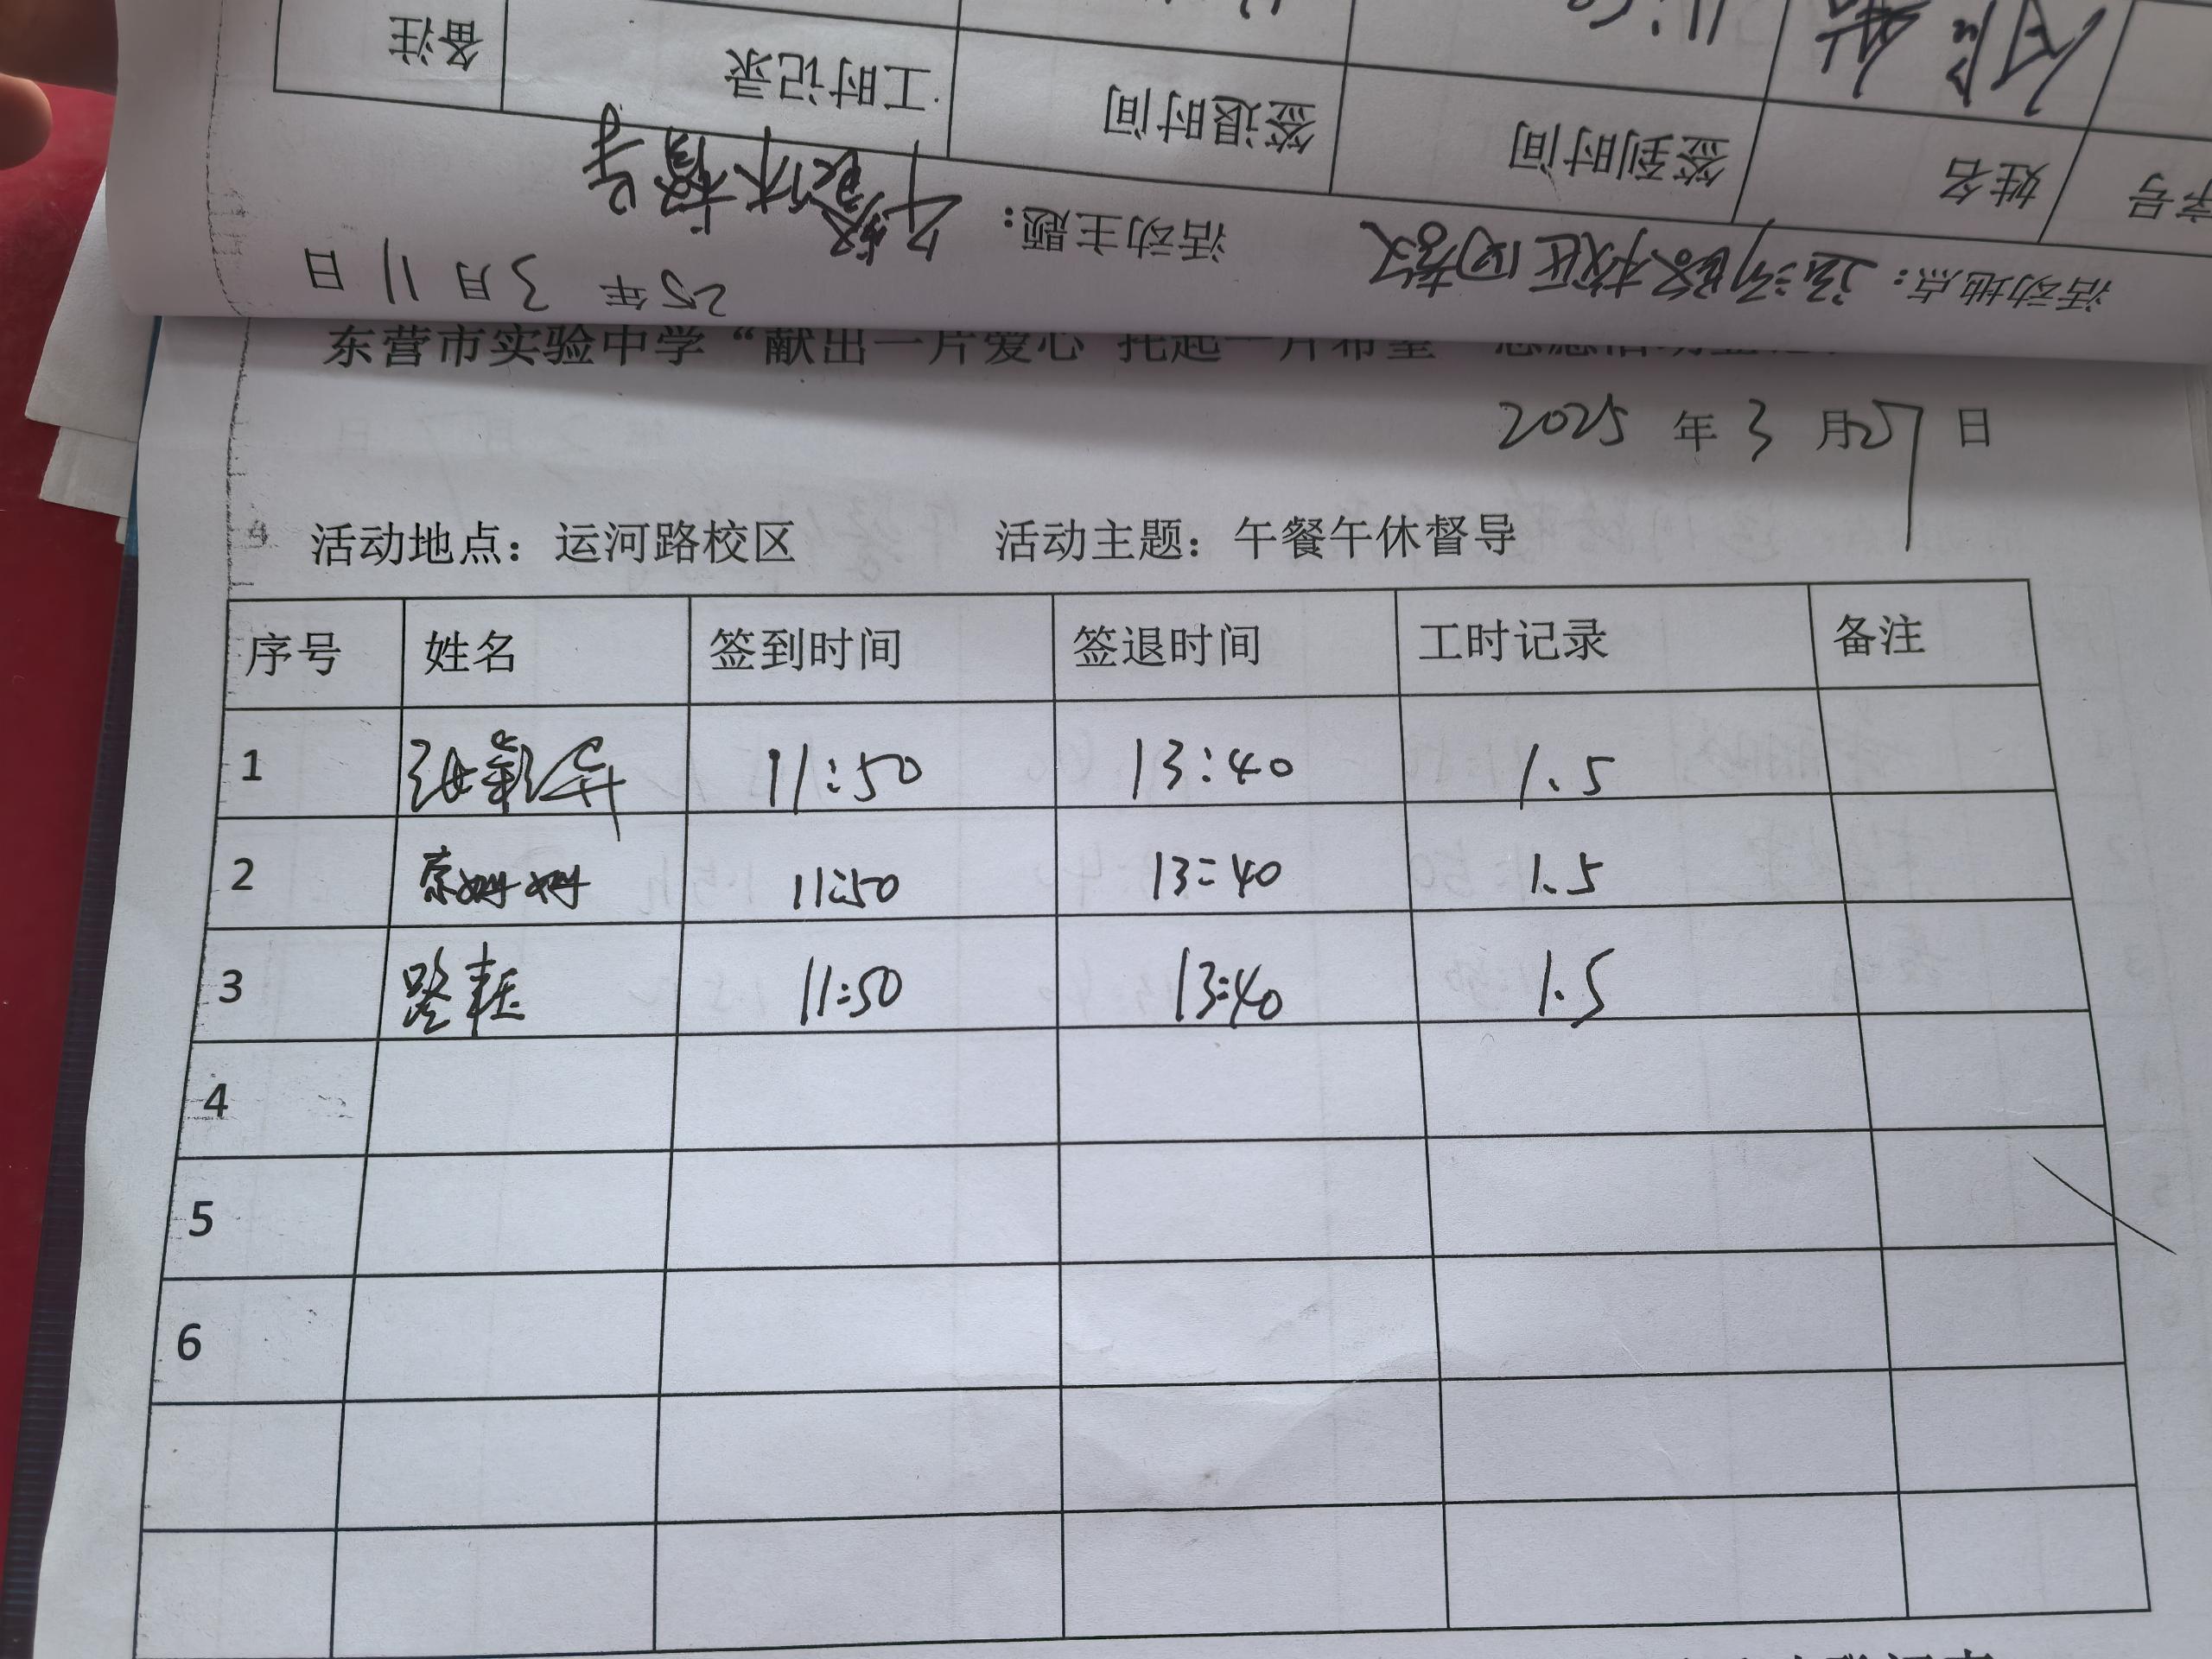 备注
工时记录
签退时间
签到时间
姓名
序号
活动地点：运河路校区 活动主题：午餐午休督导
25年 3月 11日
东营市实验中学“献出一片爱心 托起一片希望
2025 年 3 月 27 日
活动地点：运河路校区 活动主题：午餐午休督导
序号 姓名 签到时间 签退时间 工时记录 备注
1 11:50 13:40 1.5
2 京姗姗 11:50 13:40 1.5
3 路 11:50 13:40 1.5
4
5
6